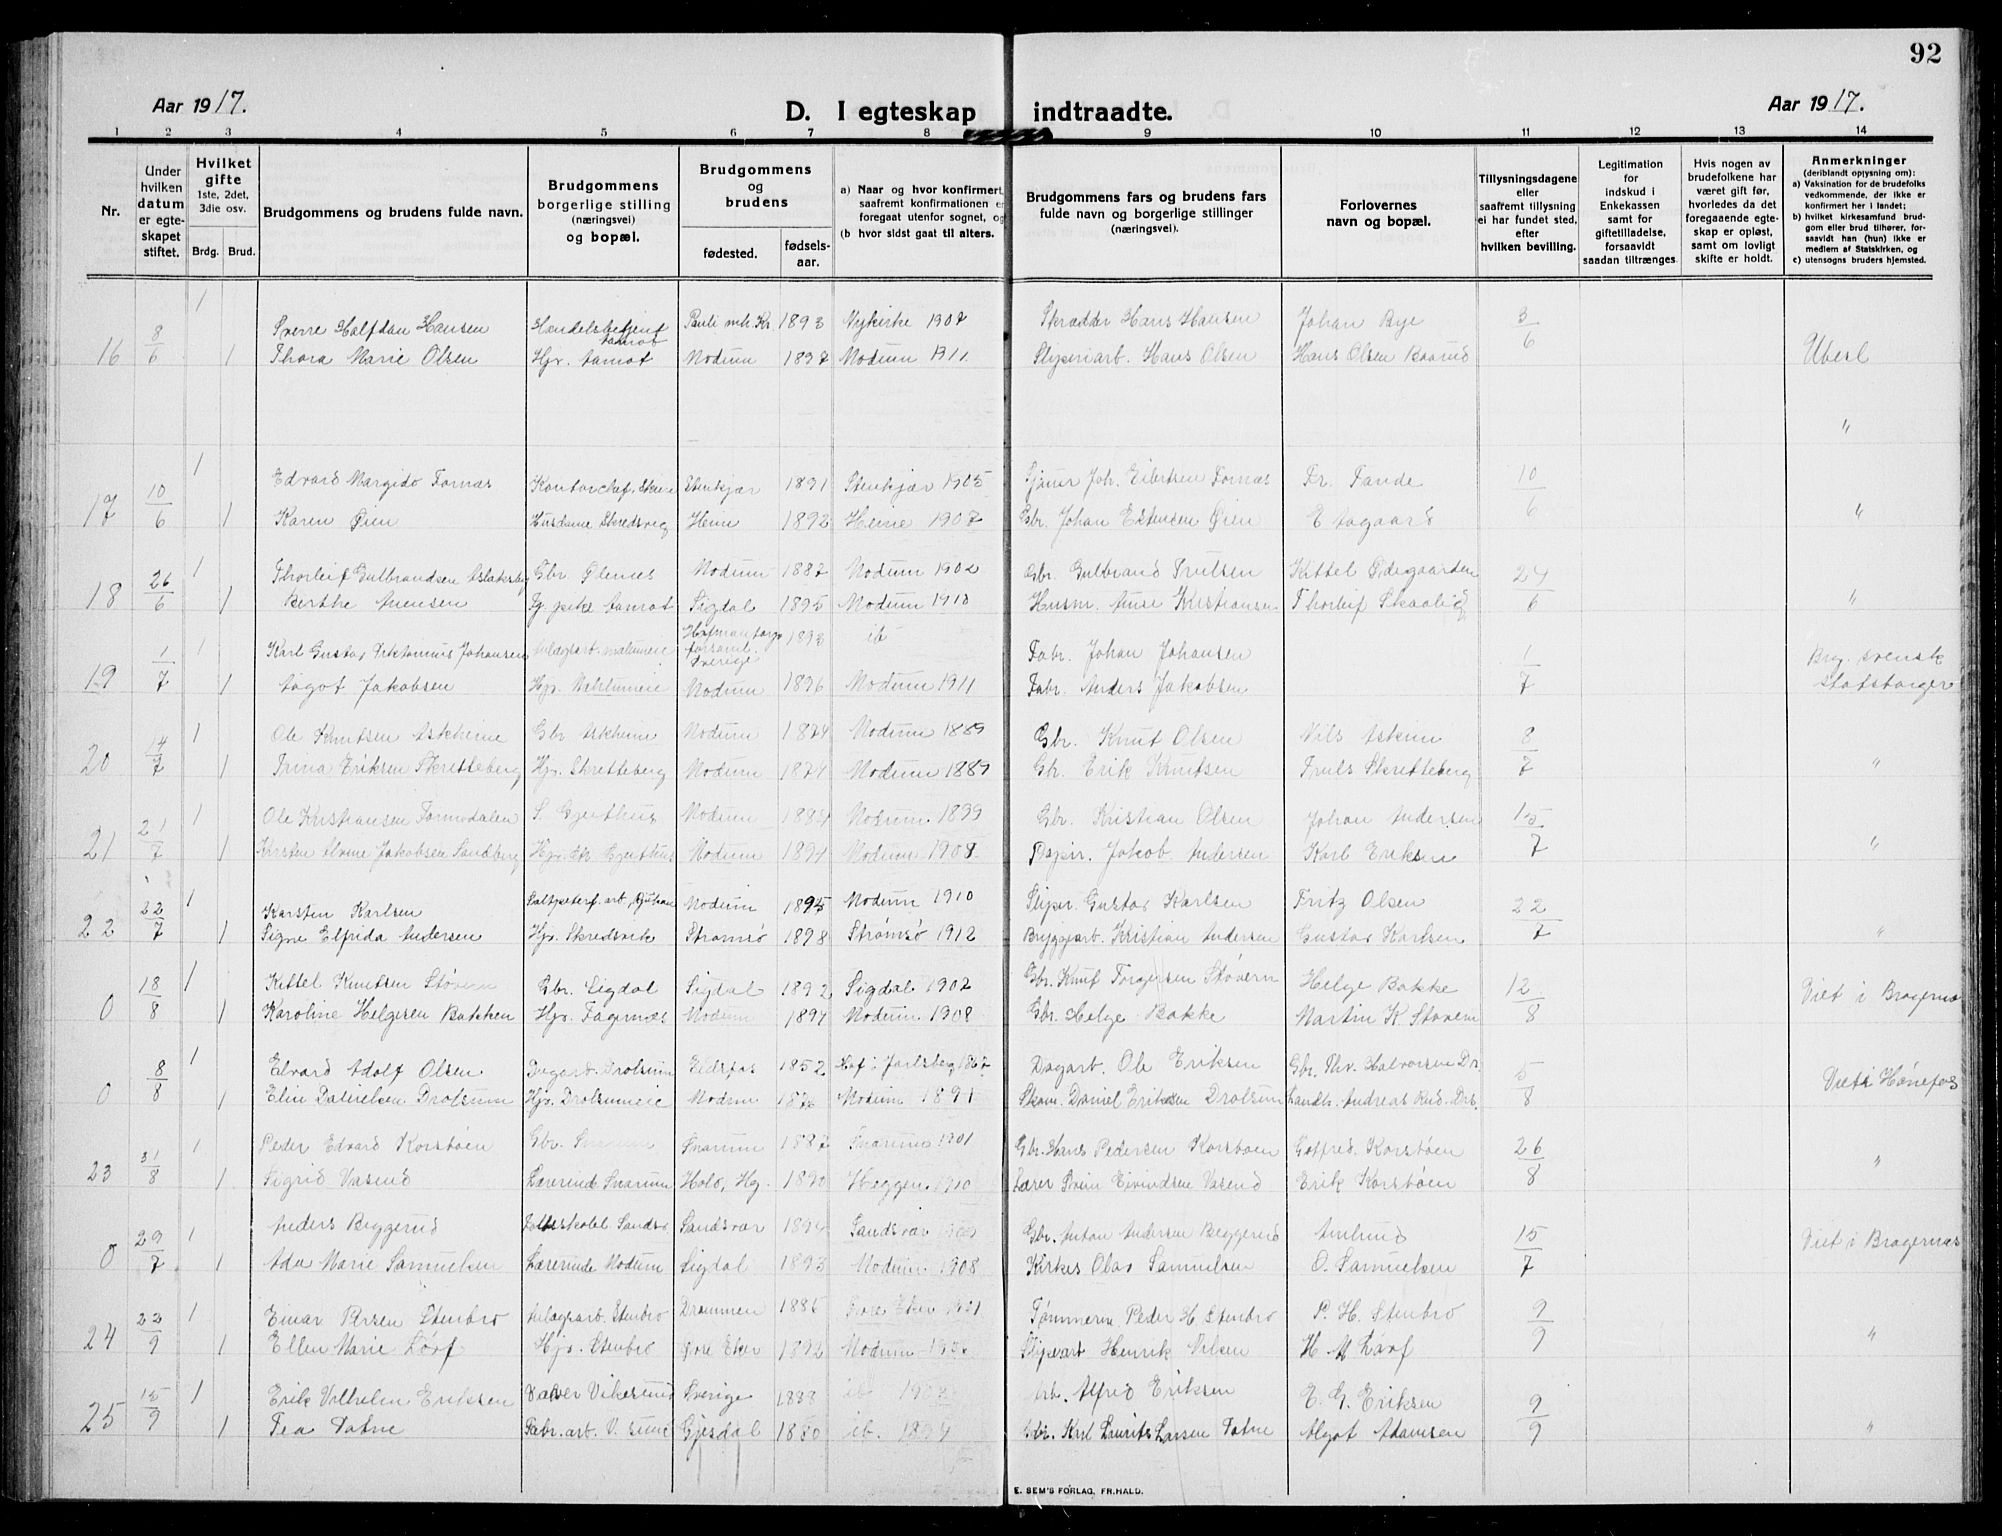 92
Aar 1917.
D. I egteskap indtraadte.
Aar 1917.
1 2 3 4 5 6 7 8 9 10 11 12 13 14
Nr.
Under hvilken datum er egteskapet stiftet.
Hvilket gifte 1ste, 2det, 3die osv.
Brdg. Brud.
Brudgommens og brudens fulde navn.
Brudgommens borgerlige stilling (næringsvei) og bopæl.
Brudgommens og brudens
fødested. fødselsaar.
a) Naar og hvor konfirmert, saafremt konfirmationen er foregaat utenfor sognet, og
(b hvor sidst gaat til alters.
Brudgommens fars og brudens fars fulde navn og borgerlige stillinger (næringsvei).
Forlovernes navn og bopæl.
Tillysningsdagene eller saafremt tillysning ei har fundet sted, efter hvilken bevilling.
Legitimation for indskud i Enkekassen samt for giftetilladelse, forsaavidt saadan tiltrænges.
Hvis nogen av brudefolkene har været gift før, hvorledes da det foregaaende egteskap er opløst, samt om lovligt skifte er holdt.
Anmerkninger (deriblandt opysning om):
a) Vaksination for de brudefolks vedkommende, der ikke er konfirmert her i landet;
b) hvilket kirkesamfund brudgom eller brud tilhører, forsaavidt han (hun) ikke er medlem af Statskirken, og
c) utensogns bruders hjemsted.
8/6 1 Sverre Halfdan Hansen Handelsbetjent 1893 Nykirke 1907 Skrædder Hans Hansen Johan Bye 3/6
16 1 Thora Marie Olsen Hjv. Aamot Modum 1897 Modum 1911 Sliperiarb. Hans Olsen Hans Olsen Baarud Ubesl
"
10/6 1 Edvard Margido Fornæs Kontorchef, Stenkjær 1891 Stenkjær 1905 Joh. Eilertsen Fornæs Fr. Fande 10/6
17 1 Karen Øien Husdame Skredsvig Hemne 1892 Hemne 1907 Gbr. Johan Estensen Øien E Aagaard "
26/6 1 Thorleif Gulbrandsen Gbr. Ølernes Modum 1887 Modum 1902 Gbr Gulbrand Trulsen Kittel Ødegaarden 24/6
18 1 Berthe Arnesen Aamot Sigdal 1895 Modum 1910 Husm. Arne Kristiansen Thorleif Skaalid "
1/7 1 Karl Gustav Johansen forsaml. Sverige 1893 ib Fabr. Johan Johansen 1/7 Brg. svensk
19 1 Aagot Jakobsen Hjv. Modum 1896 Modum 1911 Fabr. Anders Jakobsen statsborger
14/7 1 Ole Knutsen Askheim Gbr Askheim Modum 1874 Modum 1889 Gbr. Knut Olsen Nils Askum 8/7
20 1 Trina Eriksen Skretteberg Hjv. Skretteberg Modum 1874 Modum 1889 Gbr. Erik Knutsen Truls Skretteberg "
21/7 1 Ole Kristiansen Formodalen S. Gjethus Modum 1884 Modum 1899 Gbr. Kristian Olsen Johan Andersen 15/7
21 1 Kirsten Jakobsen Sandberg Hjv. Gjethus Modum 1894 Modum 1908 Papir. Jakob Andersen Karl Eriksen "
22/7 1 Karsten Karlsen Modum 1895 Modum 1910 Sliper. Gustav Karlsen Fritz Olsen 22/7
22 1 Signe Elfrida Andersen Hjv. Skredsvik Strømsø 1898 Strømsø 1912 Bryggearb. Kristian Andersen Gustav Karlsen "
18/8 1 Kittel Knutsen Støvern Gbr. Sigdal Sigdal 1892 Sigdal 1902 Gbr Knut Torgersen Støvern Helge Bakke 12/8
0 1 Karoline Helgesen Bakken Hjv. Fagernæs Modum 1894 Modum 1908 Gbr. Helge Bakke Martin K Støvern Viet i Bragernæs
8/8 1 Edvard Adolf Olsen Dagarb. Drolsum Eidsfos 1852 Hof i Jarlsberg 1867 Dagarb. Ole Eriksen Gbr. Thv. Halvorsen Dr. 5/8
0 1 Elin Danielsen Drolsum Hjv. Drolsumeie Modum 1876 Modum 1891 Skom. Daniel Eriksen Drolsum Landh. Andreas Rud. Drs. Viet i Hønefos
31/8 1 Peder Edvard Korsbøen Gbr. Snarum 1887 Snarum 1901 Gbr. Hans Pedersen Korsbøen Gotfred Korsbøen 26/8
23 1 Sigrid Vasend Lærerinde Snarum Hol, Hg. 1890 Heggen 1910 Lærer Svein Eivindsen Vasend Erik Korsbøen "
29/7 1 Anders Beggerud Sandsv. Sandsvær 1894 Sandsvær 1909 Gbr. Anton Andersen Beggerud Amlund 15/7
0 1 Ada Marie Samuelsen Lærerinde Modum Sigdal 1893 Modum 1908 Kirkes. Olav Samuelsen O. Samuelsen Viet i Bragernæs
23/9 1 Einar Persen Stenbro Anlægsarb. Stenbro Drammen 1886 Øvre Eker 1901 Tømmerm Peder H Stenbro P. H. Stenbro 9/9
24 1 Ellen Marie Løvf Hjv. Stenbro Øvre Eker 1892 Modum Slipearb Henrik Nilsen H M Løvf "
15/9 1 Erik Vilhelm Eriksen Vikesund Sverige 1883 ib Arb. Alfred Eriksen E. G. Eriksen 9/9
25 1 Tea Tatne Fabr.arb. V. sund Gjesdal 1880 ib. 1894 Gbr. Karl Laurits Larsen Tatne Algot Adamsen "
E. SEM'S FORLAG, FR.HALD.